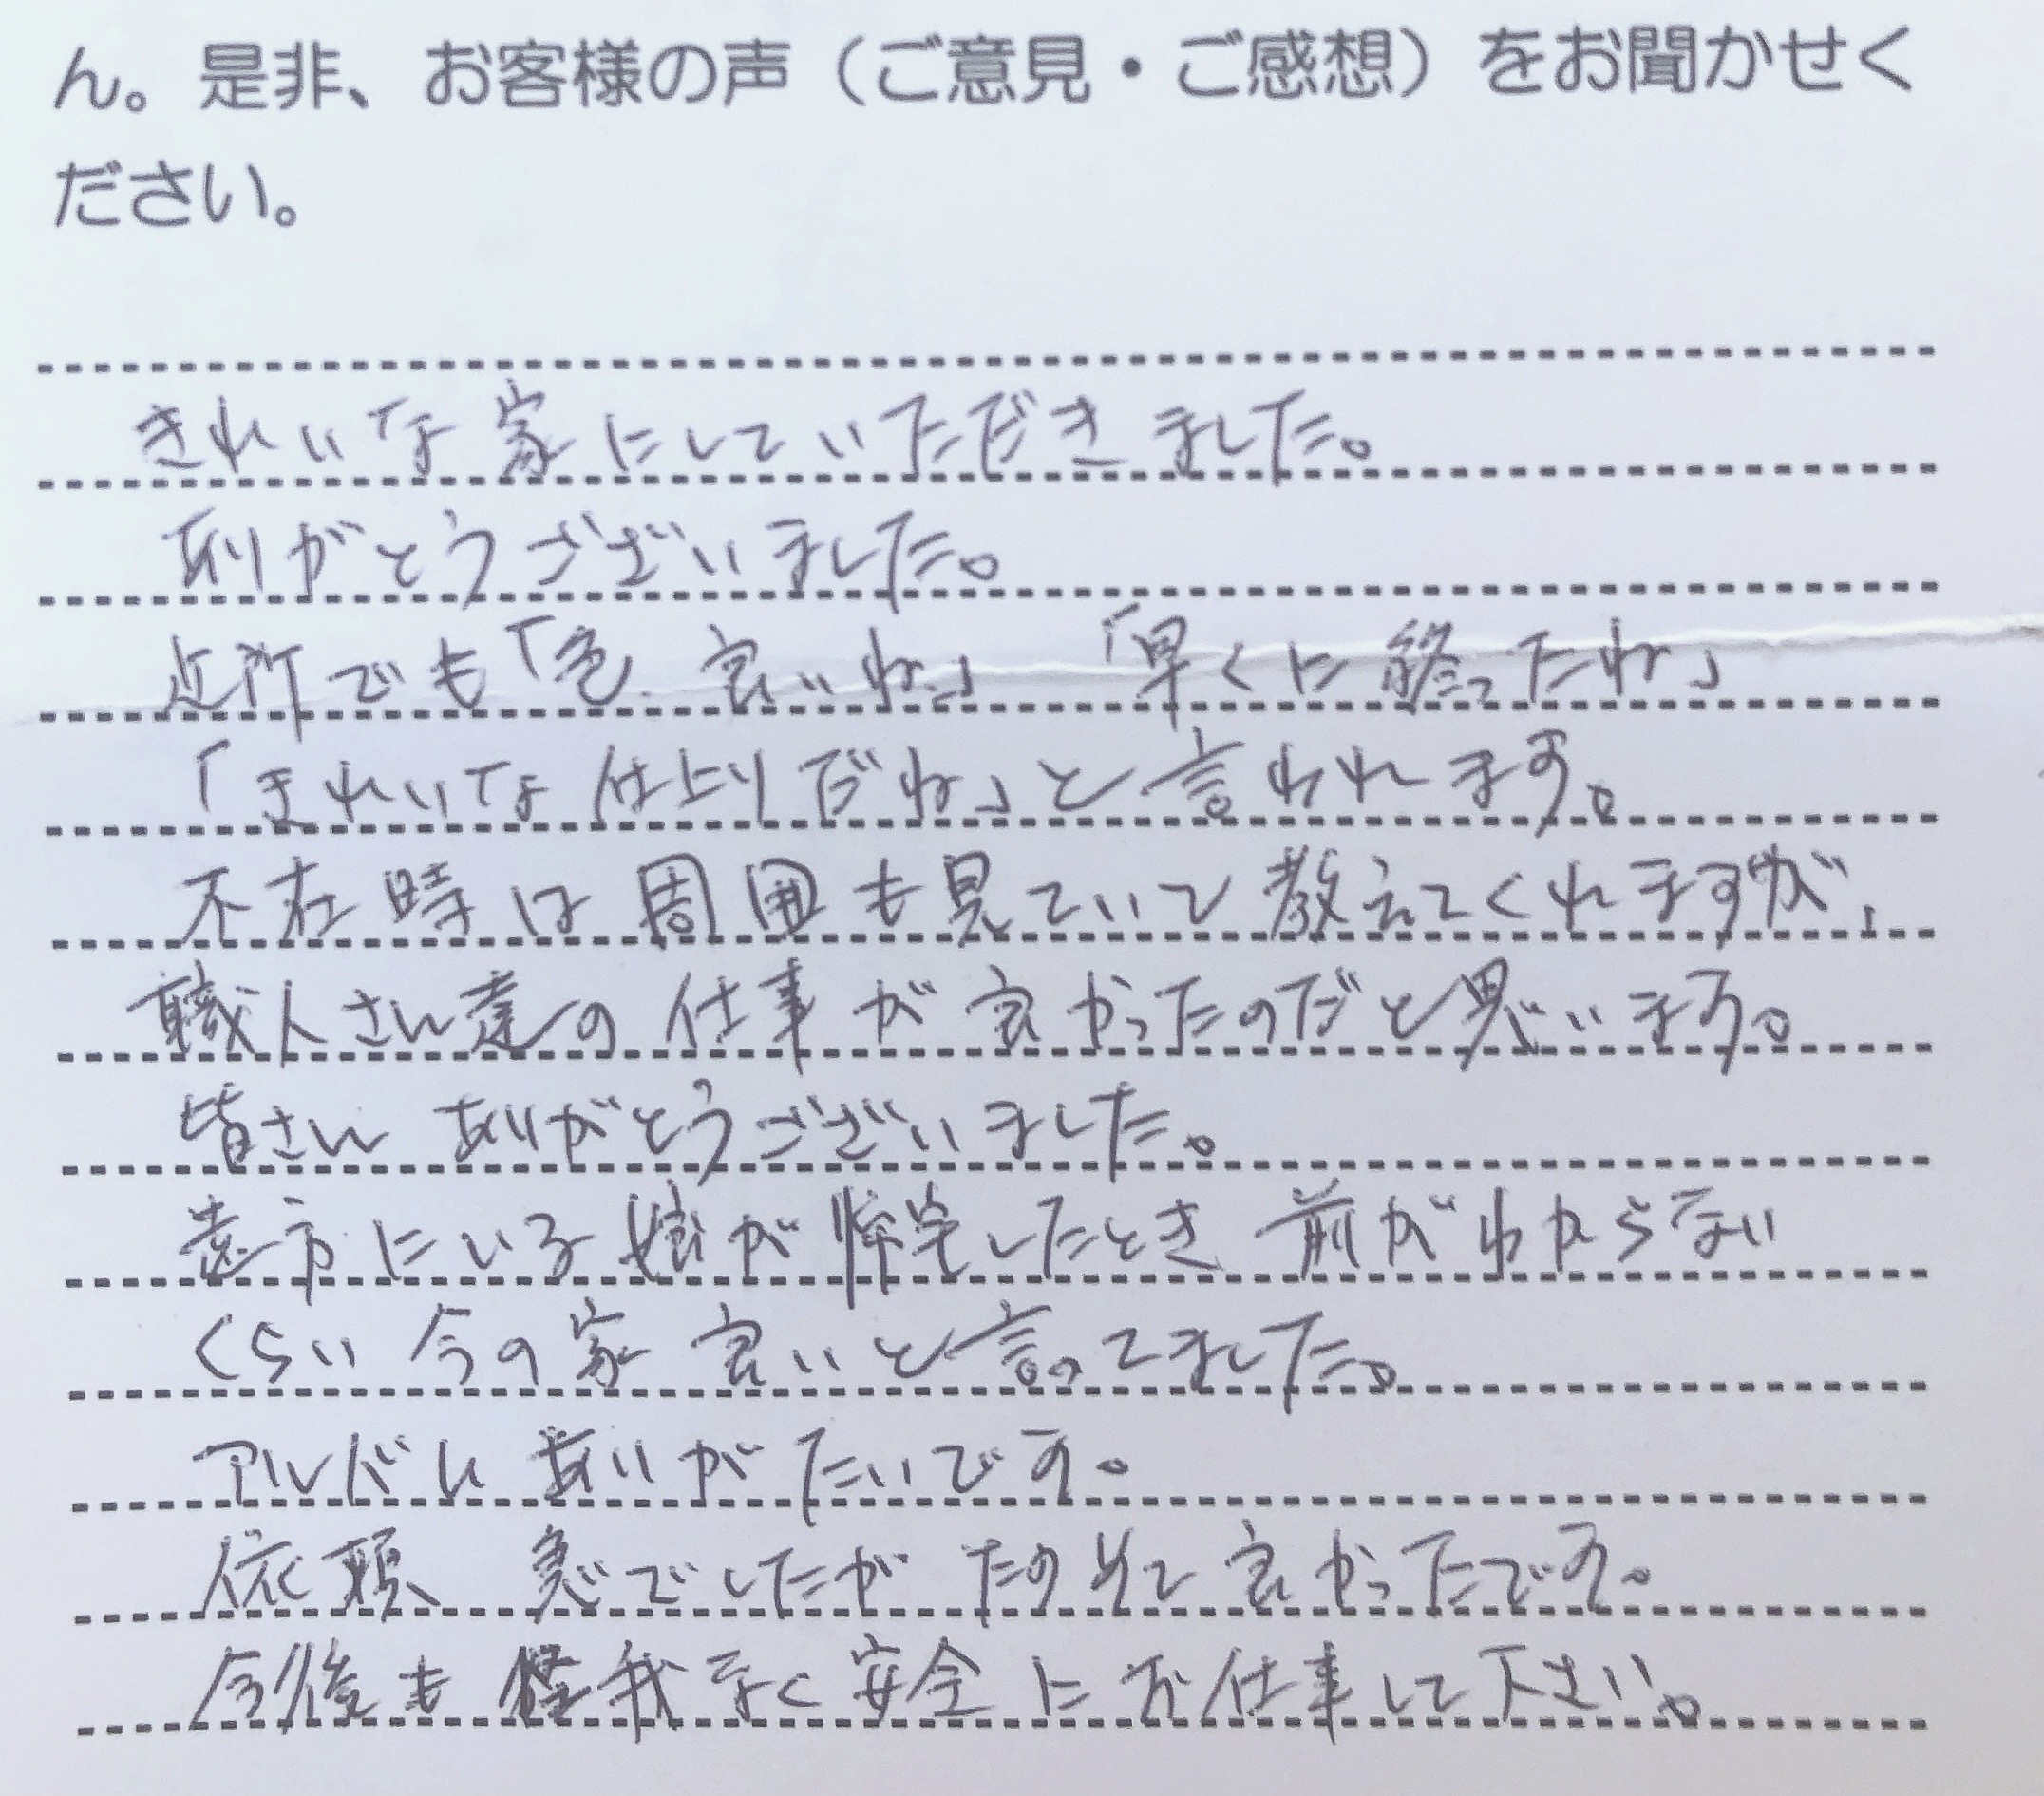 ん。是非、お客様の声（ご意見・ご感想）をお聞かせく
ださい。
きれいな家にしていただきました。
ありがとうございました。
近所でも「色良いね」「早くに終ったね」
「きれいな仕上りだね」と言われます。
不在時は周囲も見ていて教えてくれますが、
職人さん達の仕事が良かったのだと思います。
皆さんありがとうございました。
遠方にいる娘が帰宅したとき前がわからない
くらい今の家良いと言ってました。
アルバムありがたいです。
依頼急でしたがたのんで良かったです。
今後も怪我なく安全にお仕事して下さい。